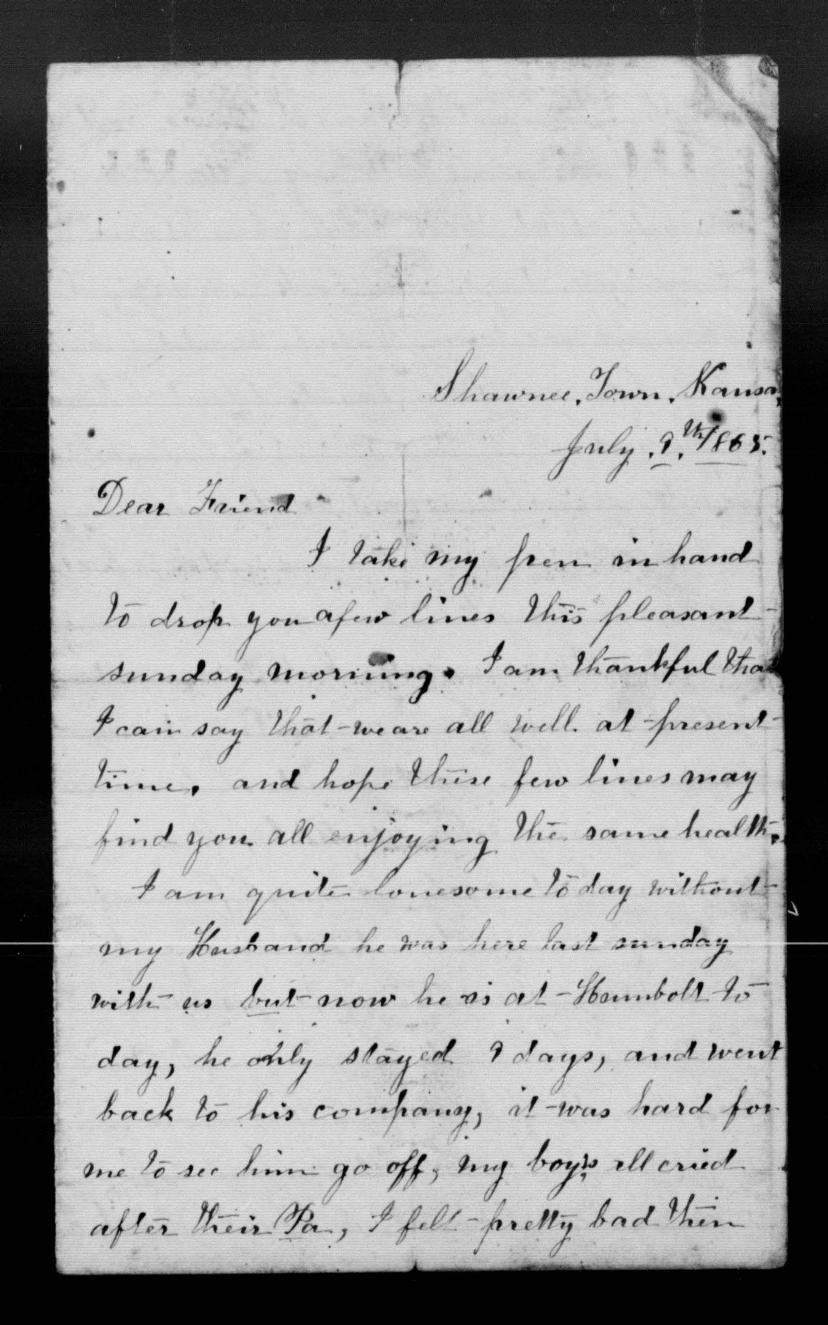 Shawnee, Town, Kansa
July 9th 1865.
Dear Friend
I take my pen in hand
to drop you a few lines this pleasant
sunday morning. I am thankful that
I can say that we are all well at present
time, and hope these few lines may
find you all enjoying the same health,
I am quite lonesome to day without
my Husband he was here last sunday
with us but now he is at Humbolt to
day, he only stayed 9 days, and went
back to his company, it was hard for
me to see him go off, my boys all cried
after their Pa, I felt pretty bad then